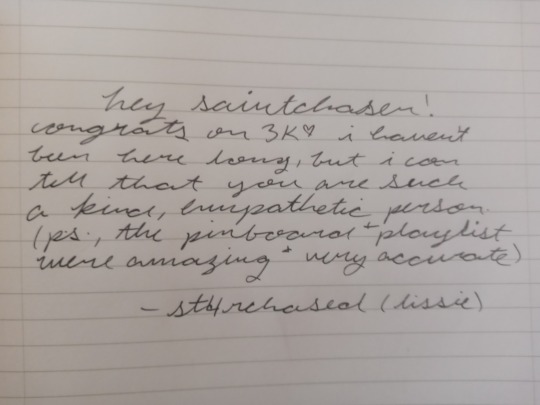 hey saintchaser!
congrats on 3K♡ i haven't
been here long, but i can
tell that you are such
a kind, empathetic person.
(ps., the pinboard + playlist
were amazing + very accurate)
- st4rchased (lissie)